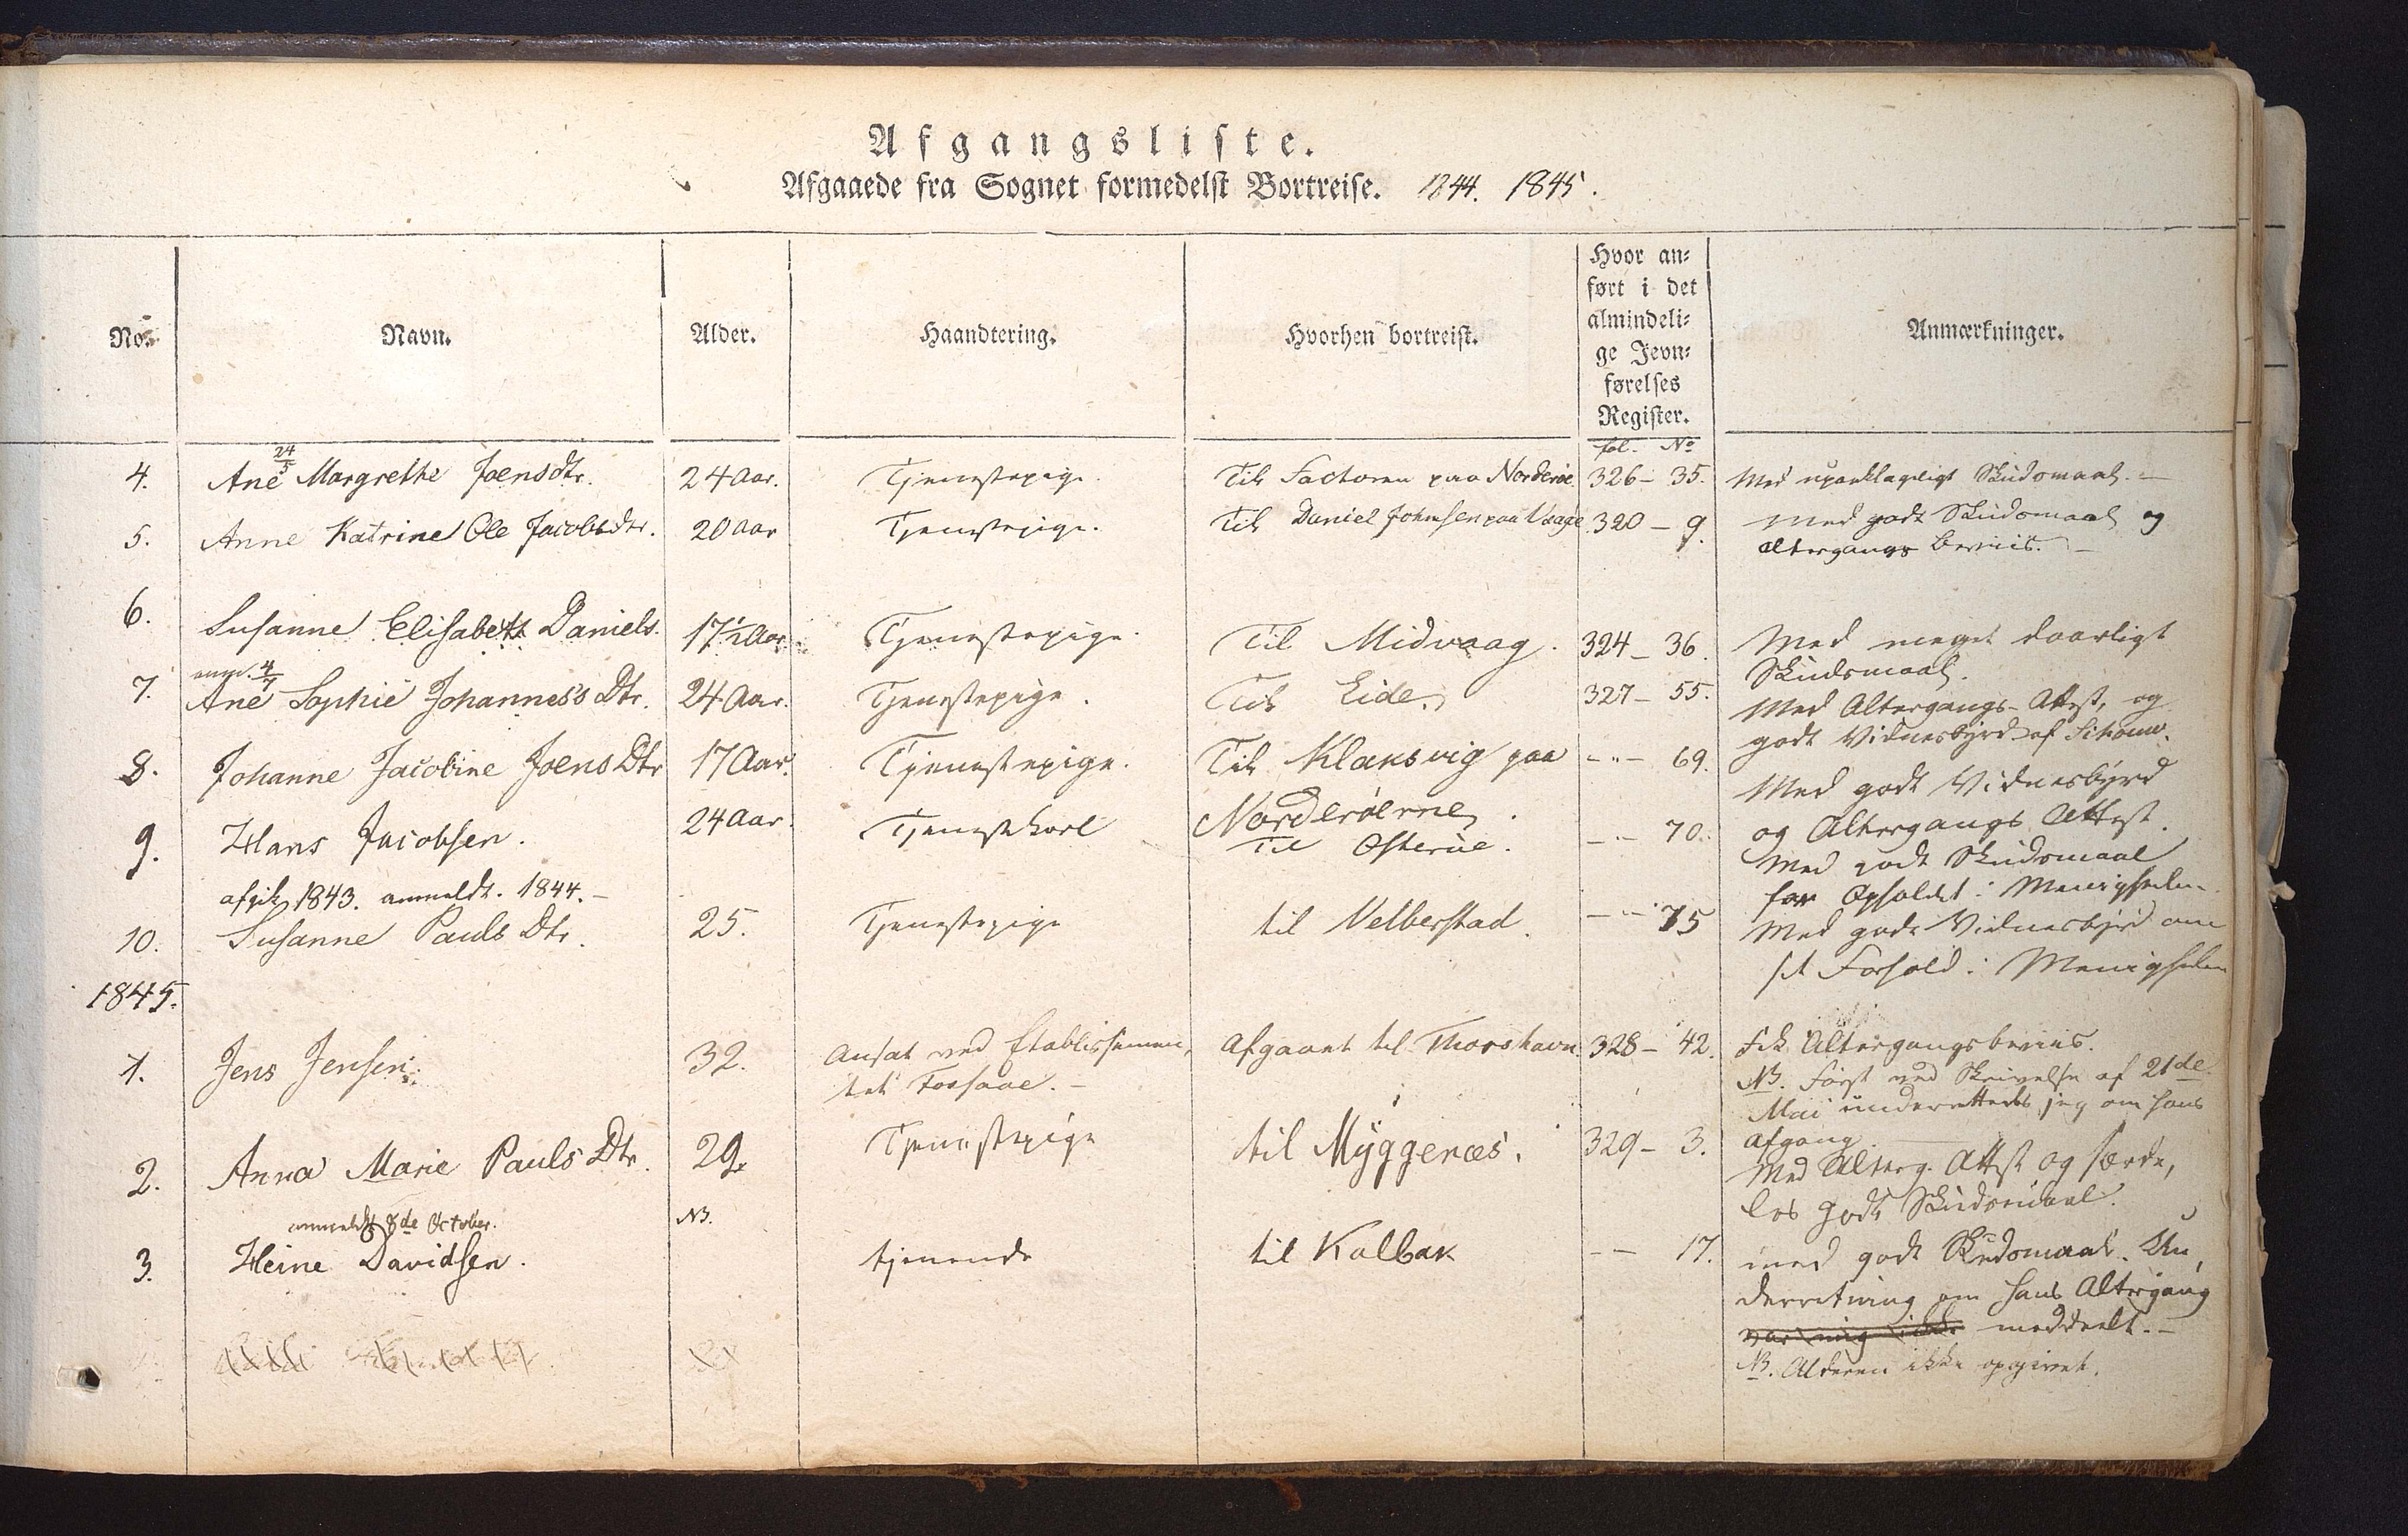 Afgangsliste.
Afgaaede fra Sognet formedelst Bortreise. 1844. 1845.
No.
Navn.
Alder.
Haandtering.
Hvorhen bortreist.
Hvor an-
ført i det
almindeli-
ge Jevn-
førelses
Register.
Anmærkninger.
fol. No
24/5
4. Ane Margrethe Joensdtr. 24 Aar. Tjenestepige. Til Factoren paa Norderöe 326 - 35. Med upaaklageligt Skudsmaal. -
5. Anne Katrine Ole Jacobsdtr. 20 Aar Tjenestepige. Til Daniel Johnsen paa Vaage 320 - 9. Med godt Skudsmaal og
Altergangs Beviis. -
6. Susanne Elisabeth Daniels. 17 1/2 Aar. Tjenestepige. Til Midvaag. 324 - 36. Med meget daarligt
Skudsmaal.
4/7
7. Ane Sophie Johanness Dtr. 24 Aar. Tjenestepige. Til Eide. 327 - 55. Med Altergangs-Attest, og
godt Vidnesbyrd af
8. Johanne Jacobine Joens Dtr 17 Aar. Tjenestepige. Til Klaksvig paa - " - 69. Med godt Vidnesbyrd
Norderöerne. og Altergangs Attest.
9. Hans Jacobsen. 24 Aar. Tjenestekarl Til Österöe. - " - 70. Med godt Skudsmaal
for Opholdet i Menigheden.
afgik 1843. anmeldt. 1844. -
10. Susanne Pauls Dtr. 25. Tjenestepige til Velberstad. - " - 75 Med godt Vidnesbyrd om
sit Forhold i Menigheden
1845.
1. Jens Jensen. 32. Ansat ved Etablissemen,
tet Fossaae. - Afgaaet til Thorshavn 328 - 42. Fik Altergangsbeviis.
NB. Først ved Skrivelse af 21de
Mai underrettedes jeg om hans
Afgang.
2. Anna Marie Pauls Dtr. 29. Tjenestepige til Myggenæs. 329 - 3. Med Alterg. Attest og særde,
les godt Skudsmaal.
anmeldt 8de October.
3. Heine Davidsen. NB. tjenende til Kalbak - - 17. med godt Skudsmaal. Un,
derretning om hans Altergang
var mig ikke meddeelt. -
NB. Alderen ikke opgivet.